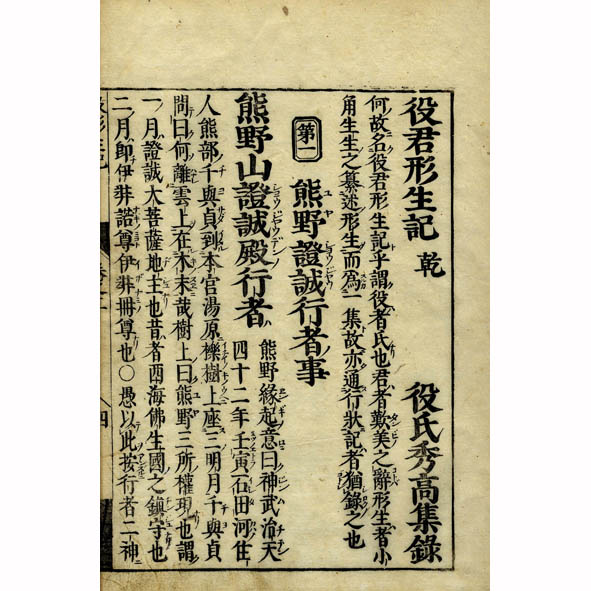 役君形生記 乾 役氏秀高集錄
何故名役君形生記乎謂役者氏也君者歎美之辭形生者小
角生生之纂述形生而爲一集故亦通行狀記者猶錄之也
第一 熊野證誠行者事
熊野山證誠殿行者 熊野緣起意曰神武治天
四十二年壬寅石田河住
人熊部千與貞到本宮湯原櫟樹上座三明月千與貞
問曰何離雲上在木末哉樹上曰熊野三所權現也謂
一月證誠大菩薩地主也昔者西海佛生國之鎮守也
二月即伊弉諾尊伊弉冊尊也○愚以此按行者二神
四